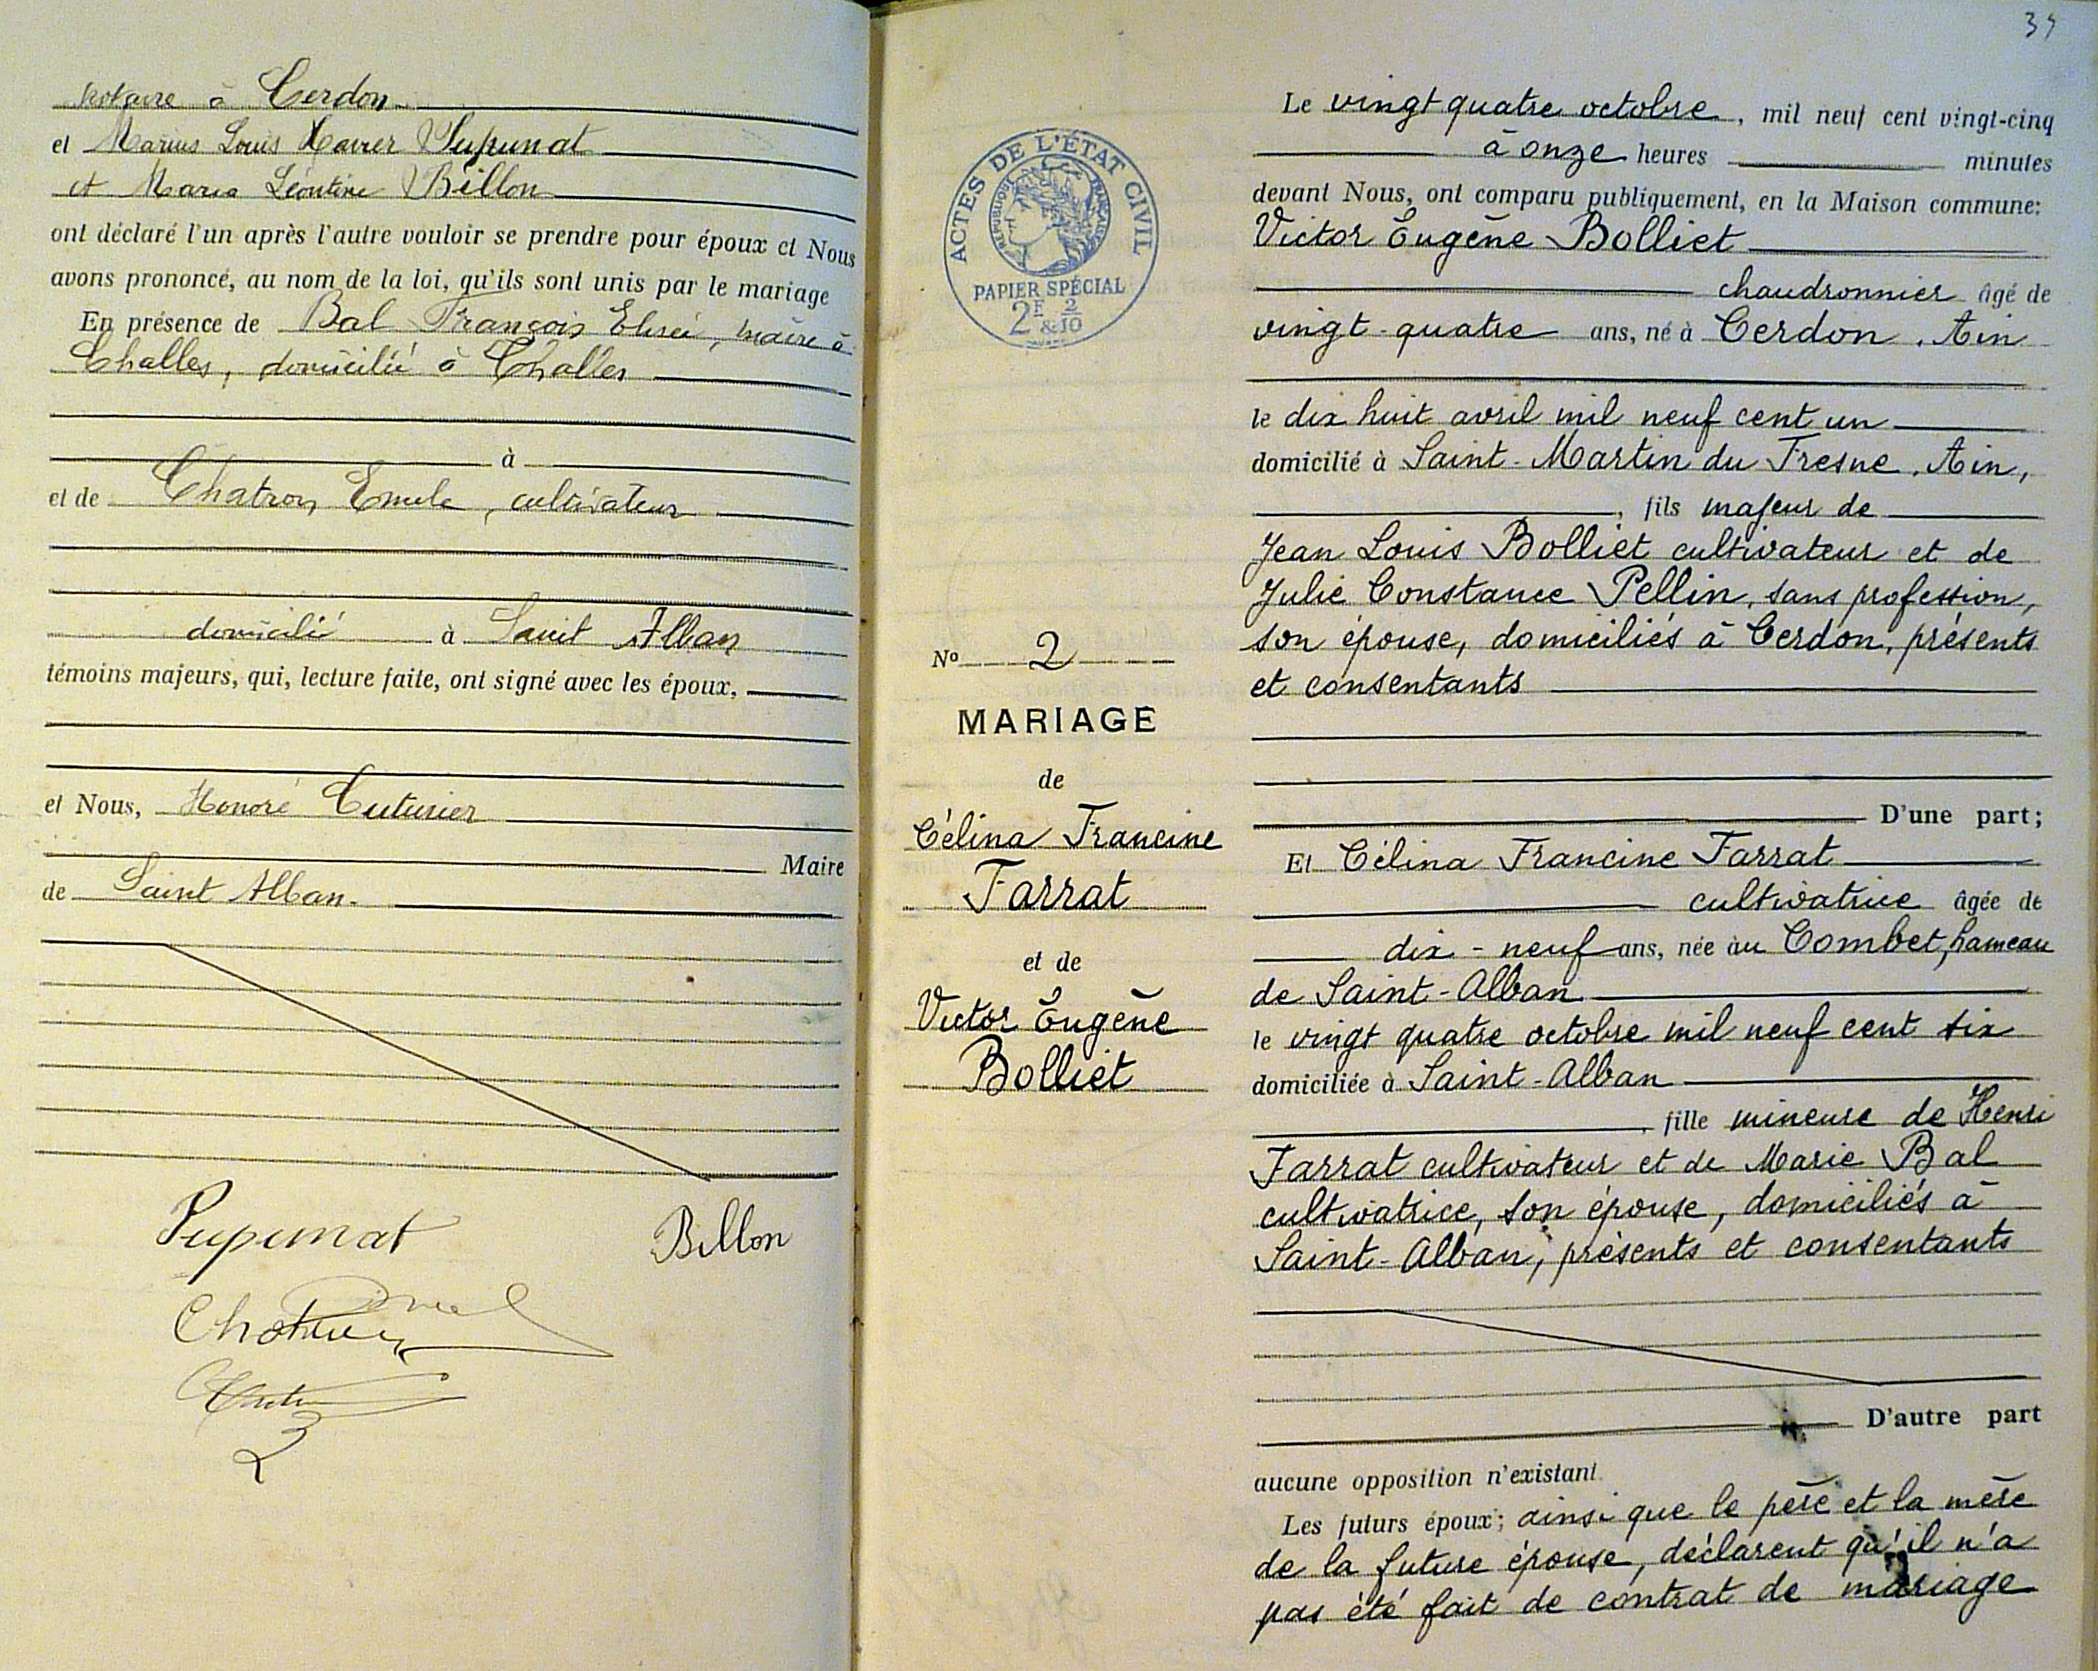 notaire à Cerdon
et Marius Louis Xavier Pupunat
et Maria Léontine Billon
ont déclaré l'un après l'autre vouloir se prendre pour époux et Nous
avons prononcé, au nom de la loi, qu'ils sont unis par le mariage
En présence de Bal François Elisée, maire à
Challes, domicilié à Challes
à
et de Chatron Emile, cultivateur
domicilié à Saint Alban
témoins majeurs, qui, lecture faite, ont signé avec les époux,
et Nous, Honoré Cuturier
Maire
de Saint Alban.
Pupunat Billon
39
ACTES DE L'ÉTAT CIVIL
RÉPUBLIQUE FRANÇAISE
PAPIER SPÉCIAL
2F 2
& 10
No 2
MARIAGE
de
Célina Francine
Farrat
et de
Victor Eugène
Bolliet
Le vingt quatre octobre, mil neuf cent vingt-cinq
à onze heures minutes
devant Nous, ont comparu publiquement, en la Maison commune:
Victor Eugène Bolliet
chaudronnier âgé de
vingt-quatre ans, né à Cerdon, Ain
le dix huit avril mil neuf cent un
domicilié à Saint-Martin du Fresne, Ain,
, fils majeur de
Jean Louis Bolliet cultivateur et de
Julie Constance Pellin, sans profession,
son épouse, domiciliés à Cerdon, présents
et consentants
D'une part;
Et Célina Francine Farrat
cultivatrice âgée de
dix-neuf ans, née àu Combet, hameau
de Saint-Alban
le vingt quatre octobre mil neuf cent six
domiciliée à Saint-Alban
, fille mineure de Henri
Farrat cultivateur et de Marie Bal
cultivatrice, son épouse, domiciliés à
Saint-Alban, présents et consentants
D'autre part
aucune opposition n'existant
Les futurs époux; ainsi que le père et la mère
de la future épouse, déclarent qu'il n'a
pas été fait de contrat de mariage